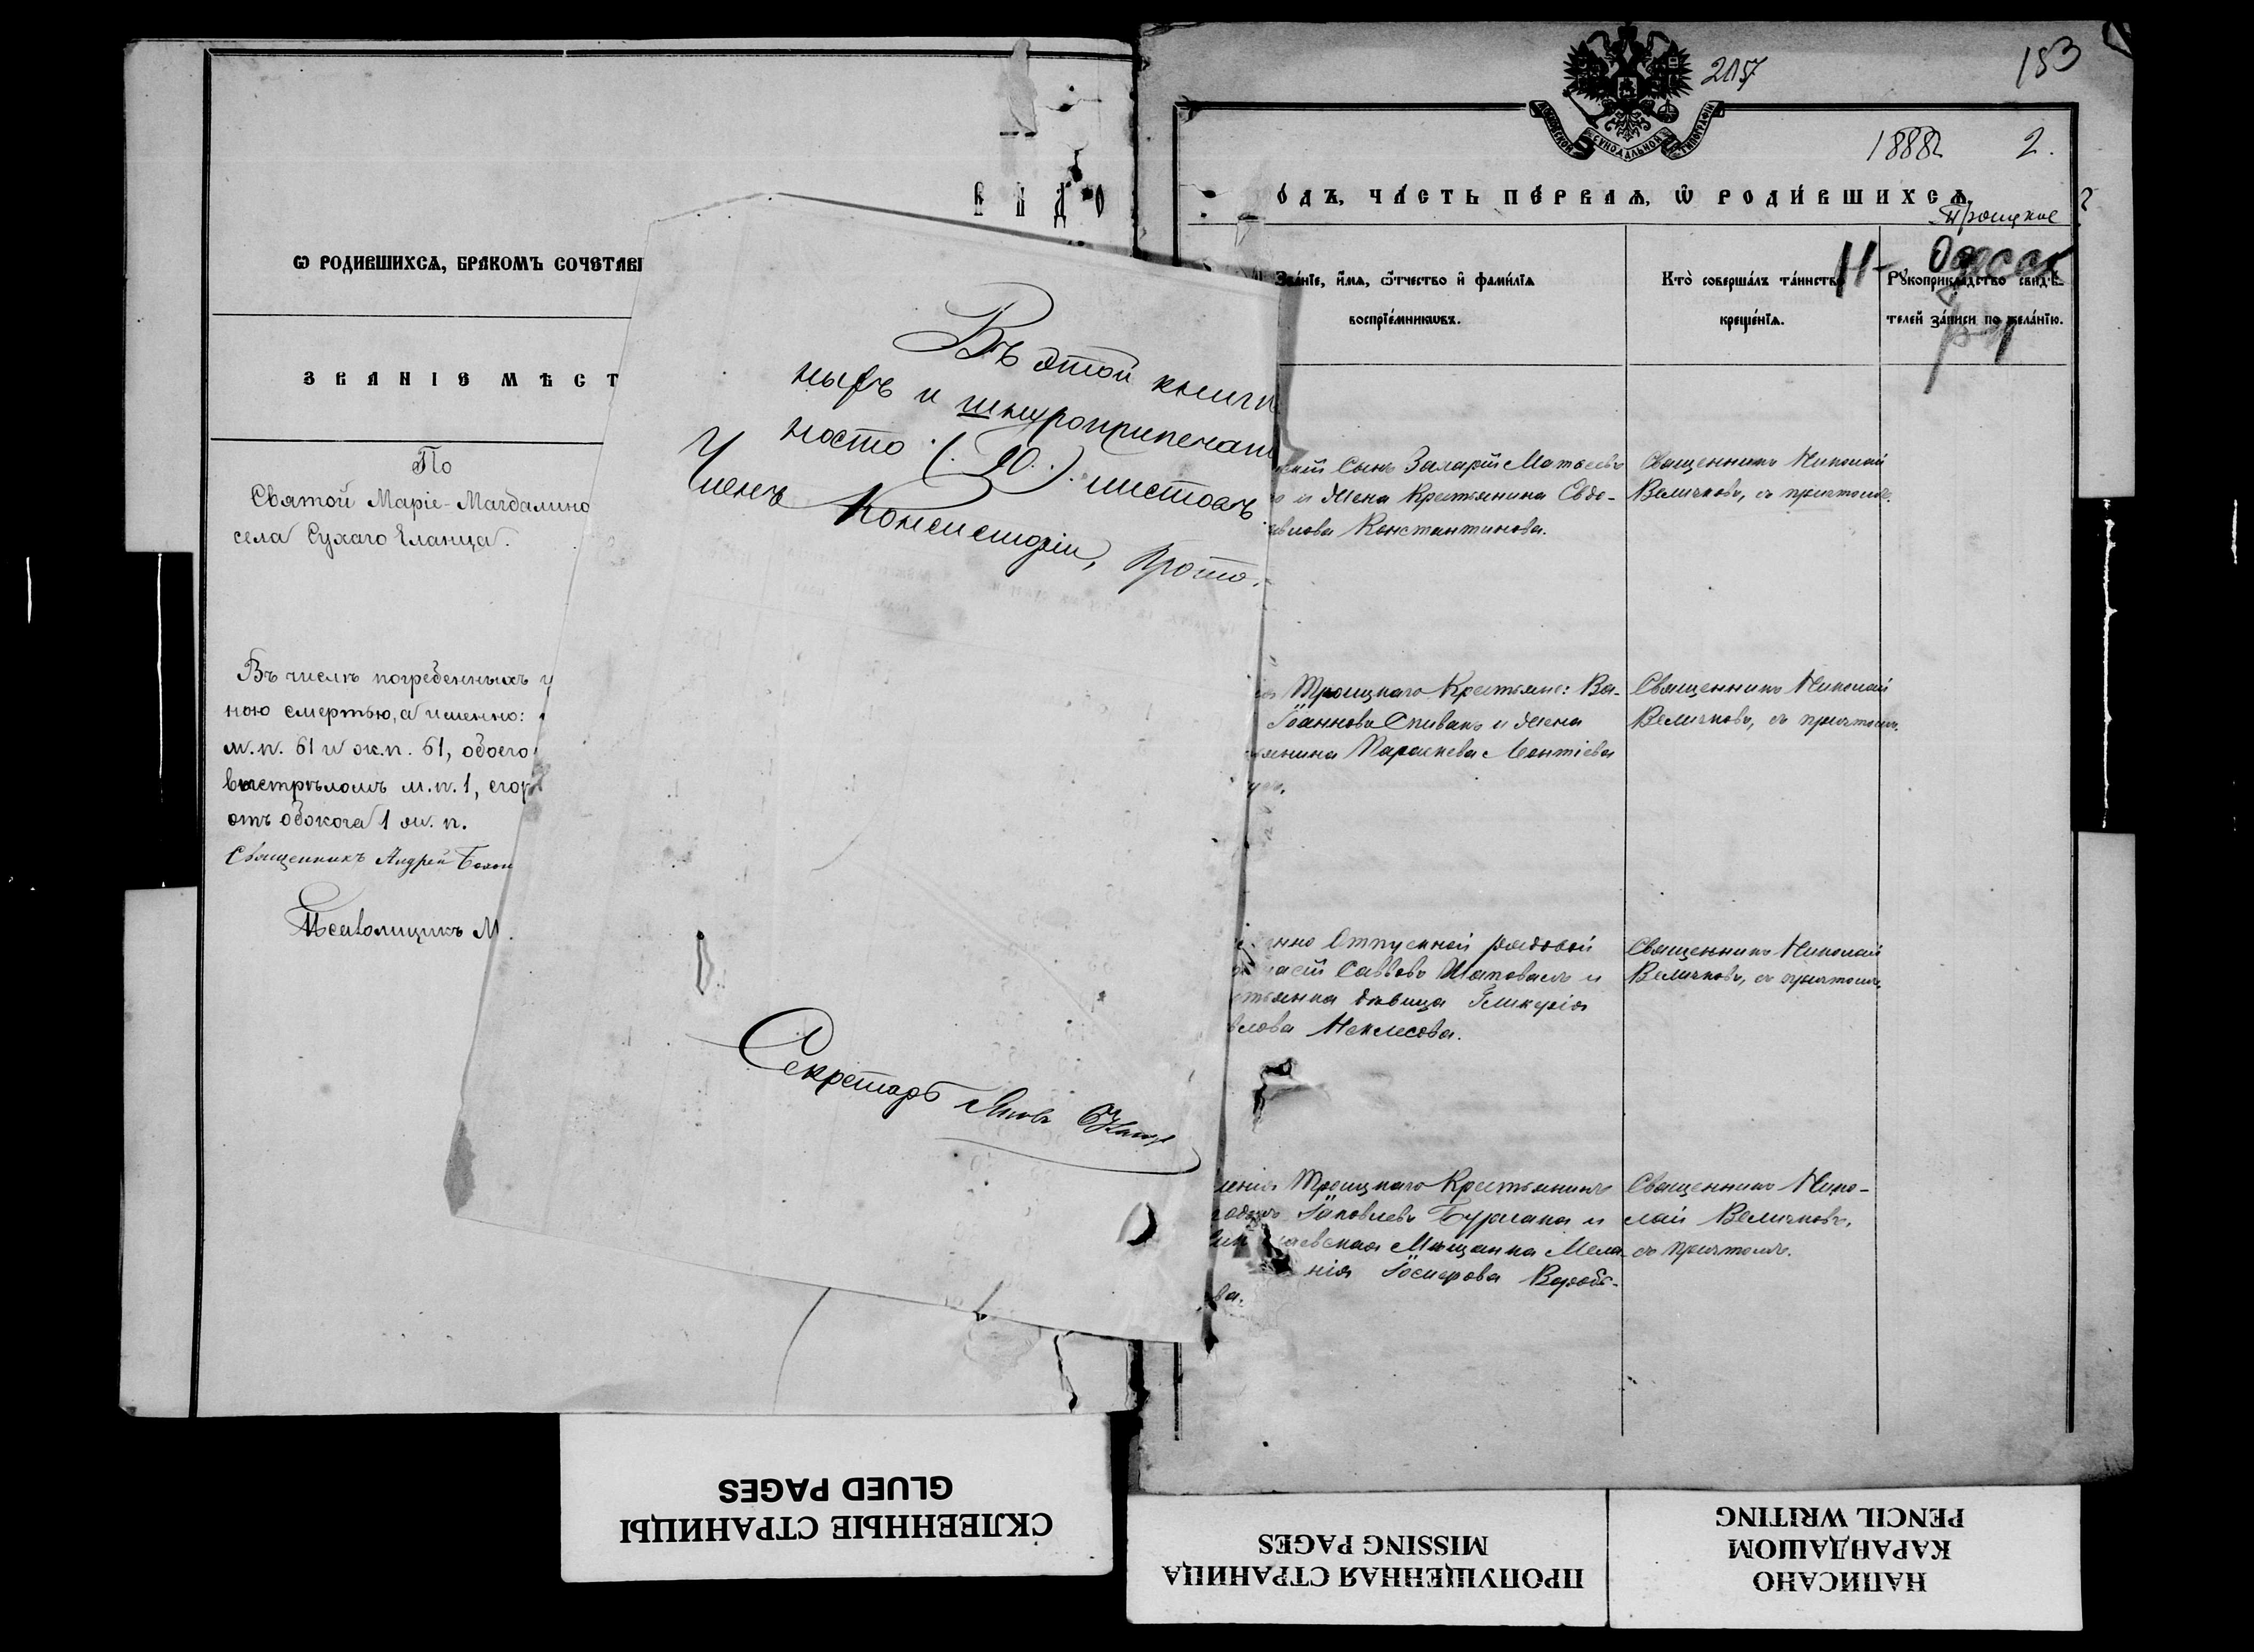 ВѢДО
Ѡ РОДИВШИХСѦ, БРАКОМЪ СОЧЕТАВ
ЗВАНІЕ МѢСТ
По
Святой Маріе-Магдалино
села Сухаго Еланца.
Въ числѣ погребенныхъ
ною смертью, а именно:
м.п. 61 и ж.п. 61, обоего
выстрѣломъ м.п. 1, сгор
отъ обжога 1 ж. п.
Священникъ Андрей
Псаломщикъ М.
Въ этой книгѣ
ныхъ и шнуроприпечат
носто (90) листовъ
Членъ Консисторіи, Прото.
Секретарь
217
153
МОСКОВСКОЙ СѴНОДАЛЬНОЙ ТИПОГРАФІИ
1888
2.
ОДЪ, ЧАСТЬ ПЕРВАѦ, Ѡ РОДИВШИХСѦ.
Троицкое
Н-Одесса
Званіе, имѧ, ѿчество и фамиліѧ
воспріемникѡвъ.
Кто совершалъ таинство
крещеніѧ.
Рꙋкоприкладство свидѣ-
телей записи по желанію.
сынъ Захарій Матвеевъ
и жена Крестьянина Евдо-
влова Константинова.
Священникъ Николай
Величковъ, съ причтомъ.
Троицкаго Крестьяне: Ва-
Іоанновъ Спивакъ и жена
янина Параскева Леонтіева
Священникъ Николай
Величковъ, съ причтомъ.
нно Отпускной рядовой
насій Саввовъ Шаповалъ и
стьянка дѣвица Гликерія
влова Неклесова.
Священникъ Николай
Величковъ, съ причтомъ.
ленія Троицкаго Крестьянинъ
Іаковлевъ Бурлака и
аевская Мѣщанка Мела-
нія Іосифова Воробь-
ва.
Священникъ Нико-
лай Величковъ,
съ причтомъ.
СКЛЕЕННЫЕ СТРАНИЦЫ
GLUED PAGES
ПРОПУЩЕННАЯ СТРАНИЦА
MISSING PAGES
НАПИСАНО
КАРАНДАШОМ
PENCIL WRITING